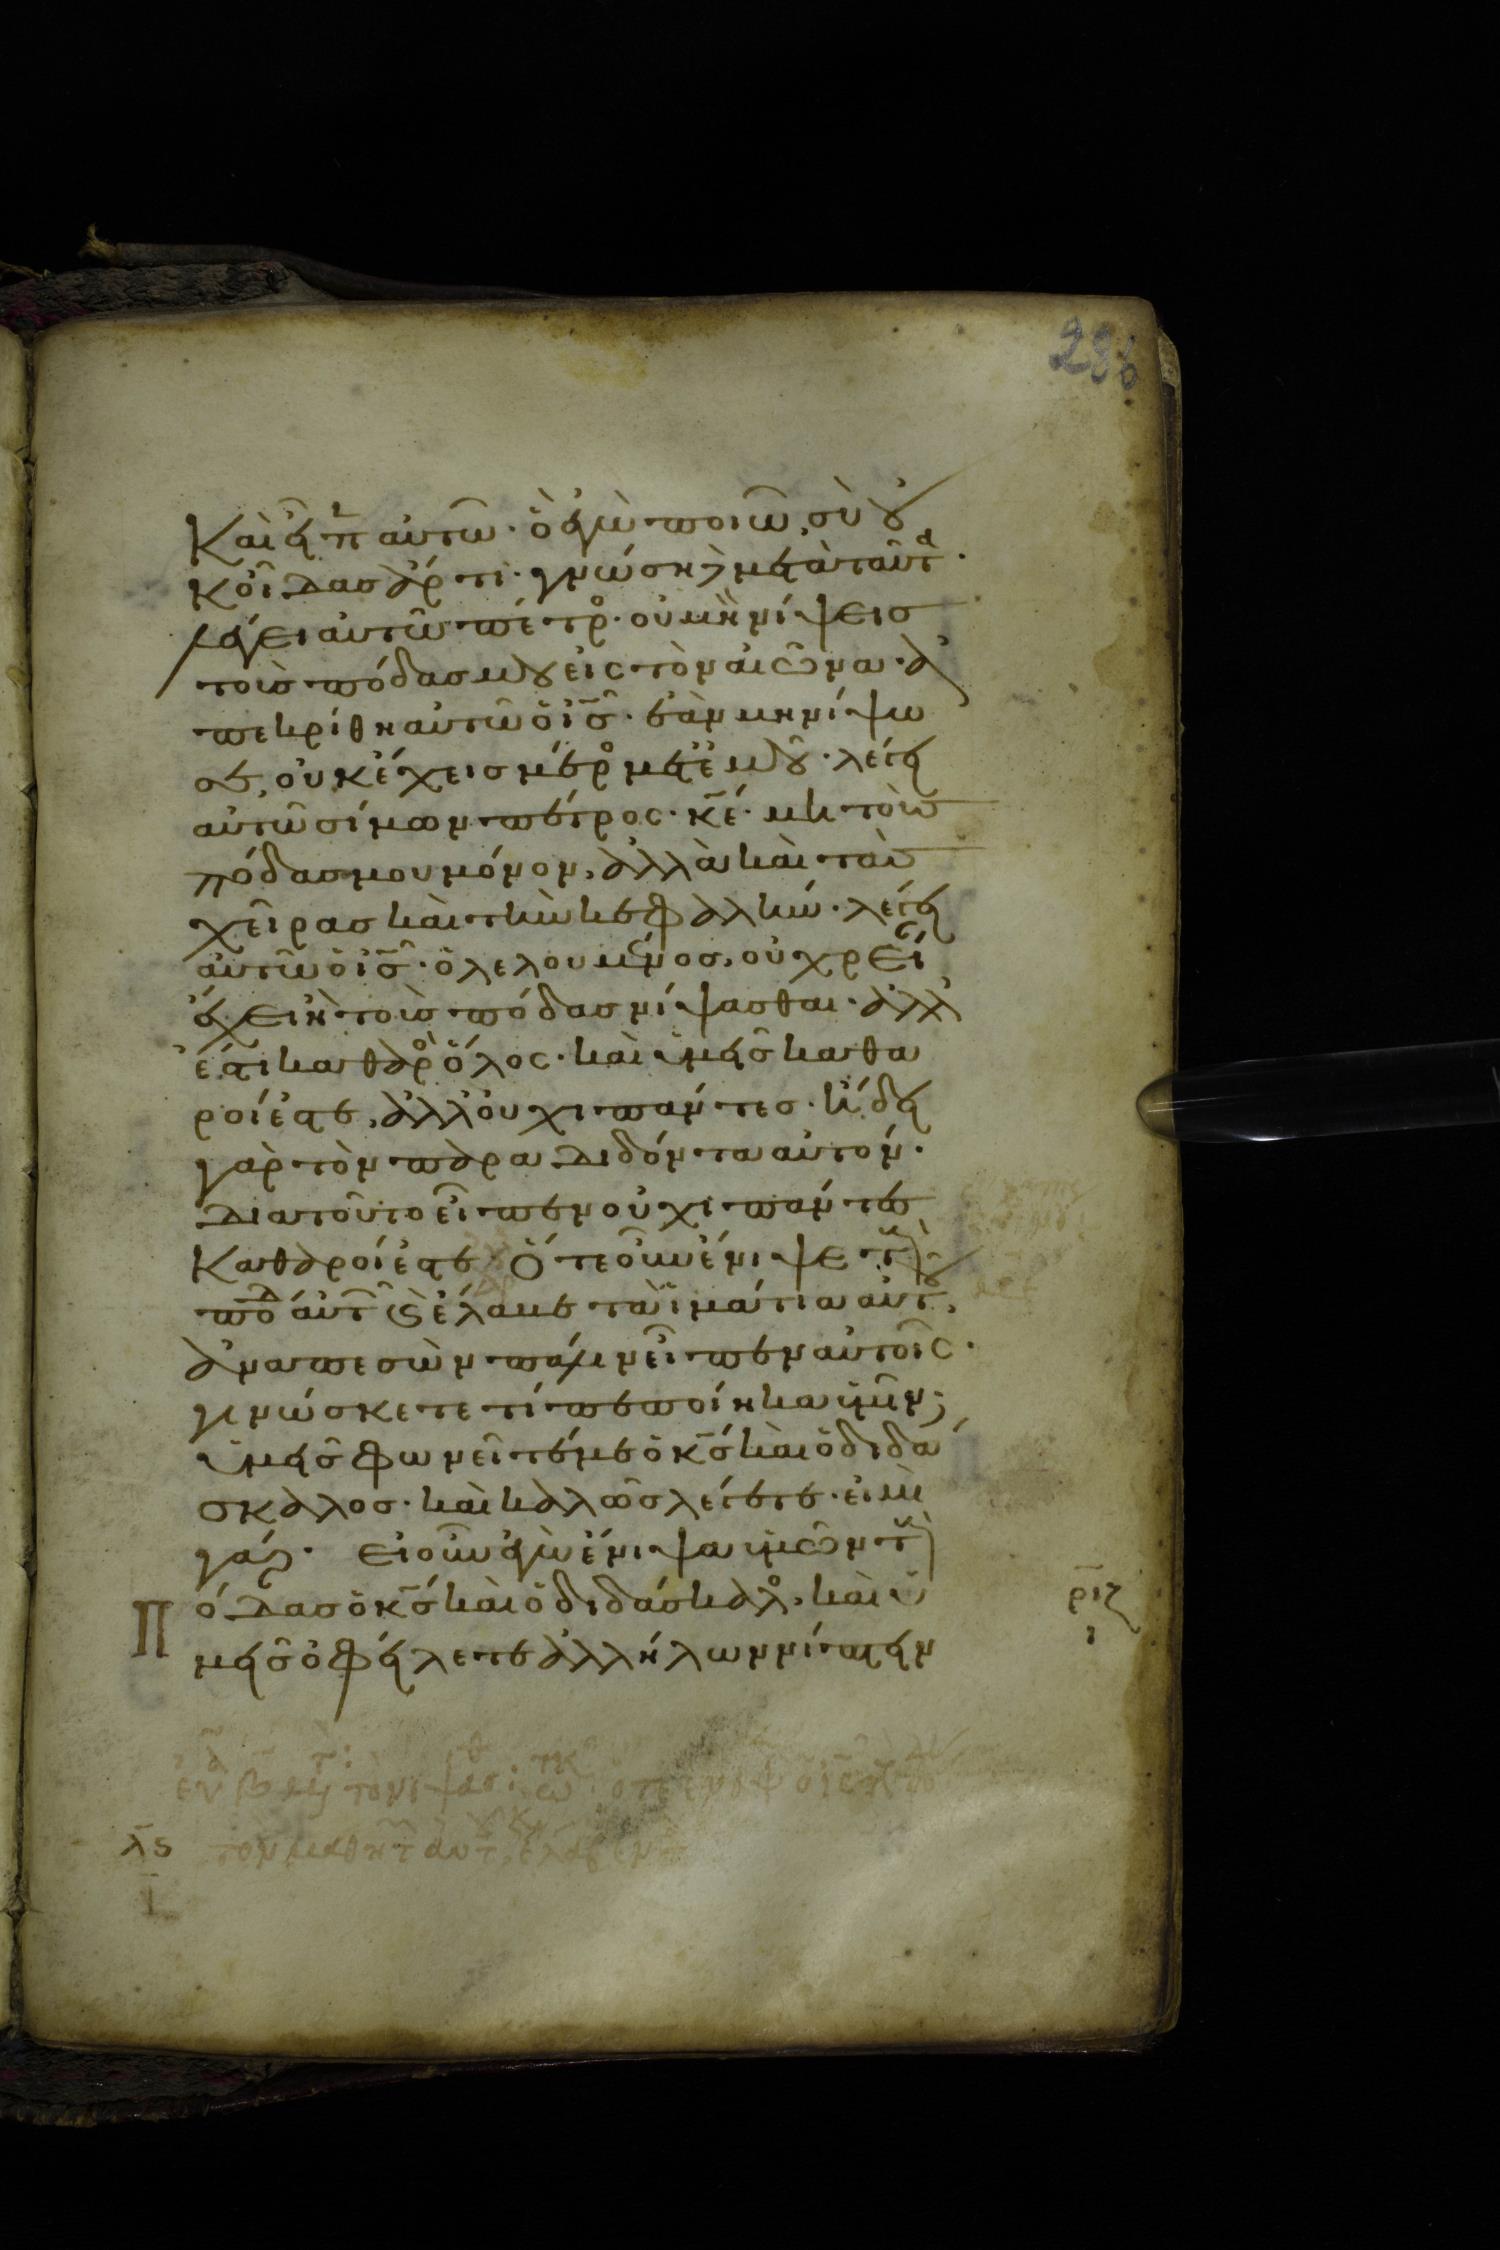 286
Καὶ εἶπ αὐτῶ· ὃ ἐγὼ ποιῶ, σὺ οὐ
κ οἶδας ἄρτι· γνώση δὲ μετὰ ταῦτα·
λέγει αὐτῶ πέτρος· οὐ μὴ νίψεις
τοὺς πόδας μου εἰς τὸν αἰῶνα· ἀ
πεκρίθη αὐτῶ ὁ ις· ἐὰν μὴ νίψω
σε, οὐκ ἔχεις μέρος μετ' ἐμοῦ· λέγει
αὐτῶ σίμων πέτρος· κε· μὴ τοὺς
πόδας μου μόνον, ἀλλὰ καὶ τὰς
χεῖρας καὶ τὴν κεφαλήν· λέγει
αὐτῶ ὁ ις· ὁ λελουμένος, οὐ χρεί
ἔχει ἢ τοὺς πόδας νίψασθαι· ἀλλ'
ἔστι καθαρὸς ὅλος· καὶ ὑμεῖς καθα
ροί ἐστε, ἀλλ' οὐχι πάντες· ἤδει
γὰρ τὸν παραδιδόντα αὐτόν·
Διατοῦτο εἶπεν οὐχι πάντες
Καθαροί ἐστε· Ὅτε οὖν ἔνιψε τοὺς
πόδ αὐτῶν ϗ ἔλαβε τὰ ἱμάτια αὐτοῦ,
ἀναπεσὼν πάλιν εἶπεν αὐτοῖς·
γινώσκετε τί πεποίηκα ὑμῖν;
ὑμεῖς φωνεῖτέ με ὁ κς καὶ ὁ διδά
σκαλος· καὶ καλῶς λέγετε· εἰμὶ
γάρ· Εἰ οὖν ἐγὼ ἔνιψα ὑμῶν τοὺς
Π όδας ὁ κς καὶ ὁ διδάσκαλος, καὶ ὑ ριζ ι
μεῖς ὀφείλετε ἀλλήλων νίπτειν
λς τῶν μαθητ αὐτ, ἔλαβεν